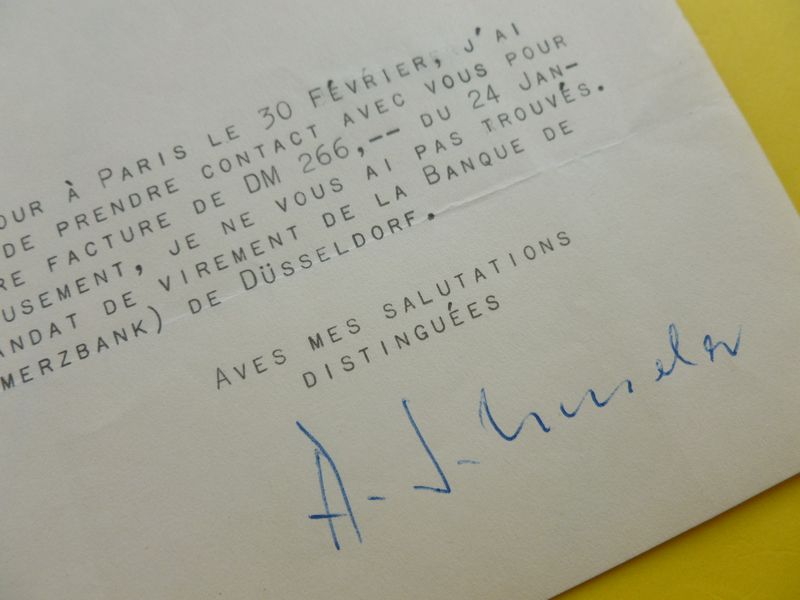 OUR À PARIS LE 30 FÉVRIER, J'AI
DE PRENDRE CONTACT AVEC VOUS POUR
RE FACTURE DE DM 266,-- DU 24 JAN-
USEMENT, JE NE VOUS AI PAS TROUVÉS.
ANDAT DE VIREMENT DE LA BANQUE DE
MERZBANK) DE DÜSSELDORF.
AVES MES SALUTATIONS
DISTINGUÉES